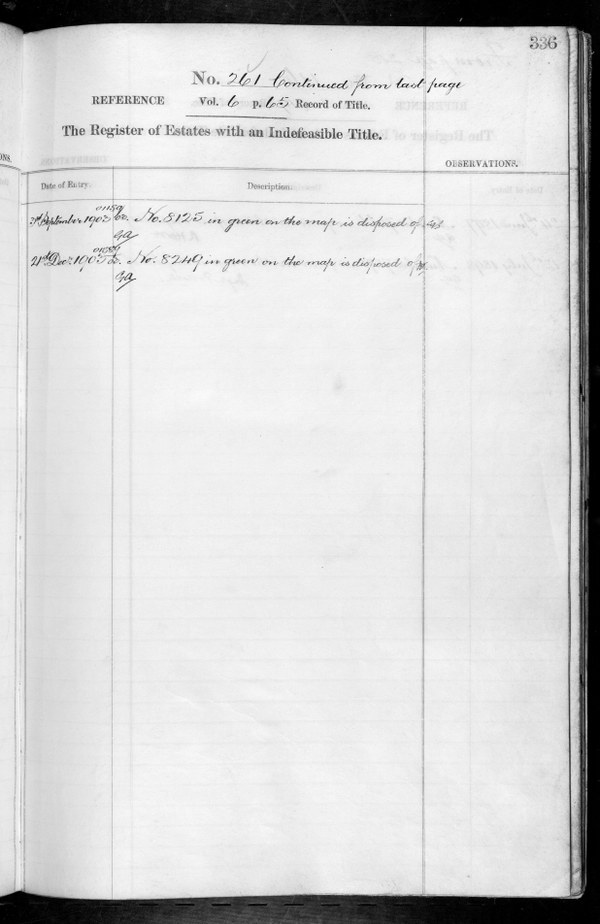 336
No. 261 Continued from last page
REFERENCE Vol. 6 p. 65 Record of Title.
The Register of Estates with an Indefeasible Title.
OBSERVATIONS.
Date of Entry. Description.
21st September 1903 No. 8125 in green on the map is disposed of
21st Decr. 1903 No. 8249 in green on the map is disposed of